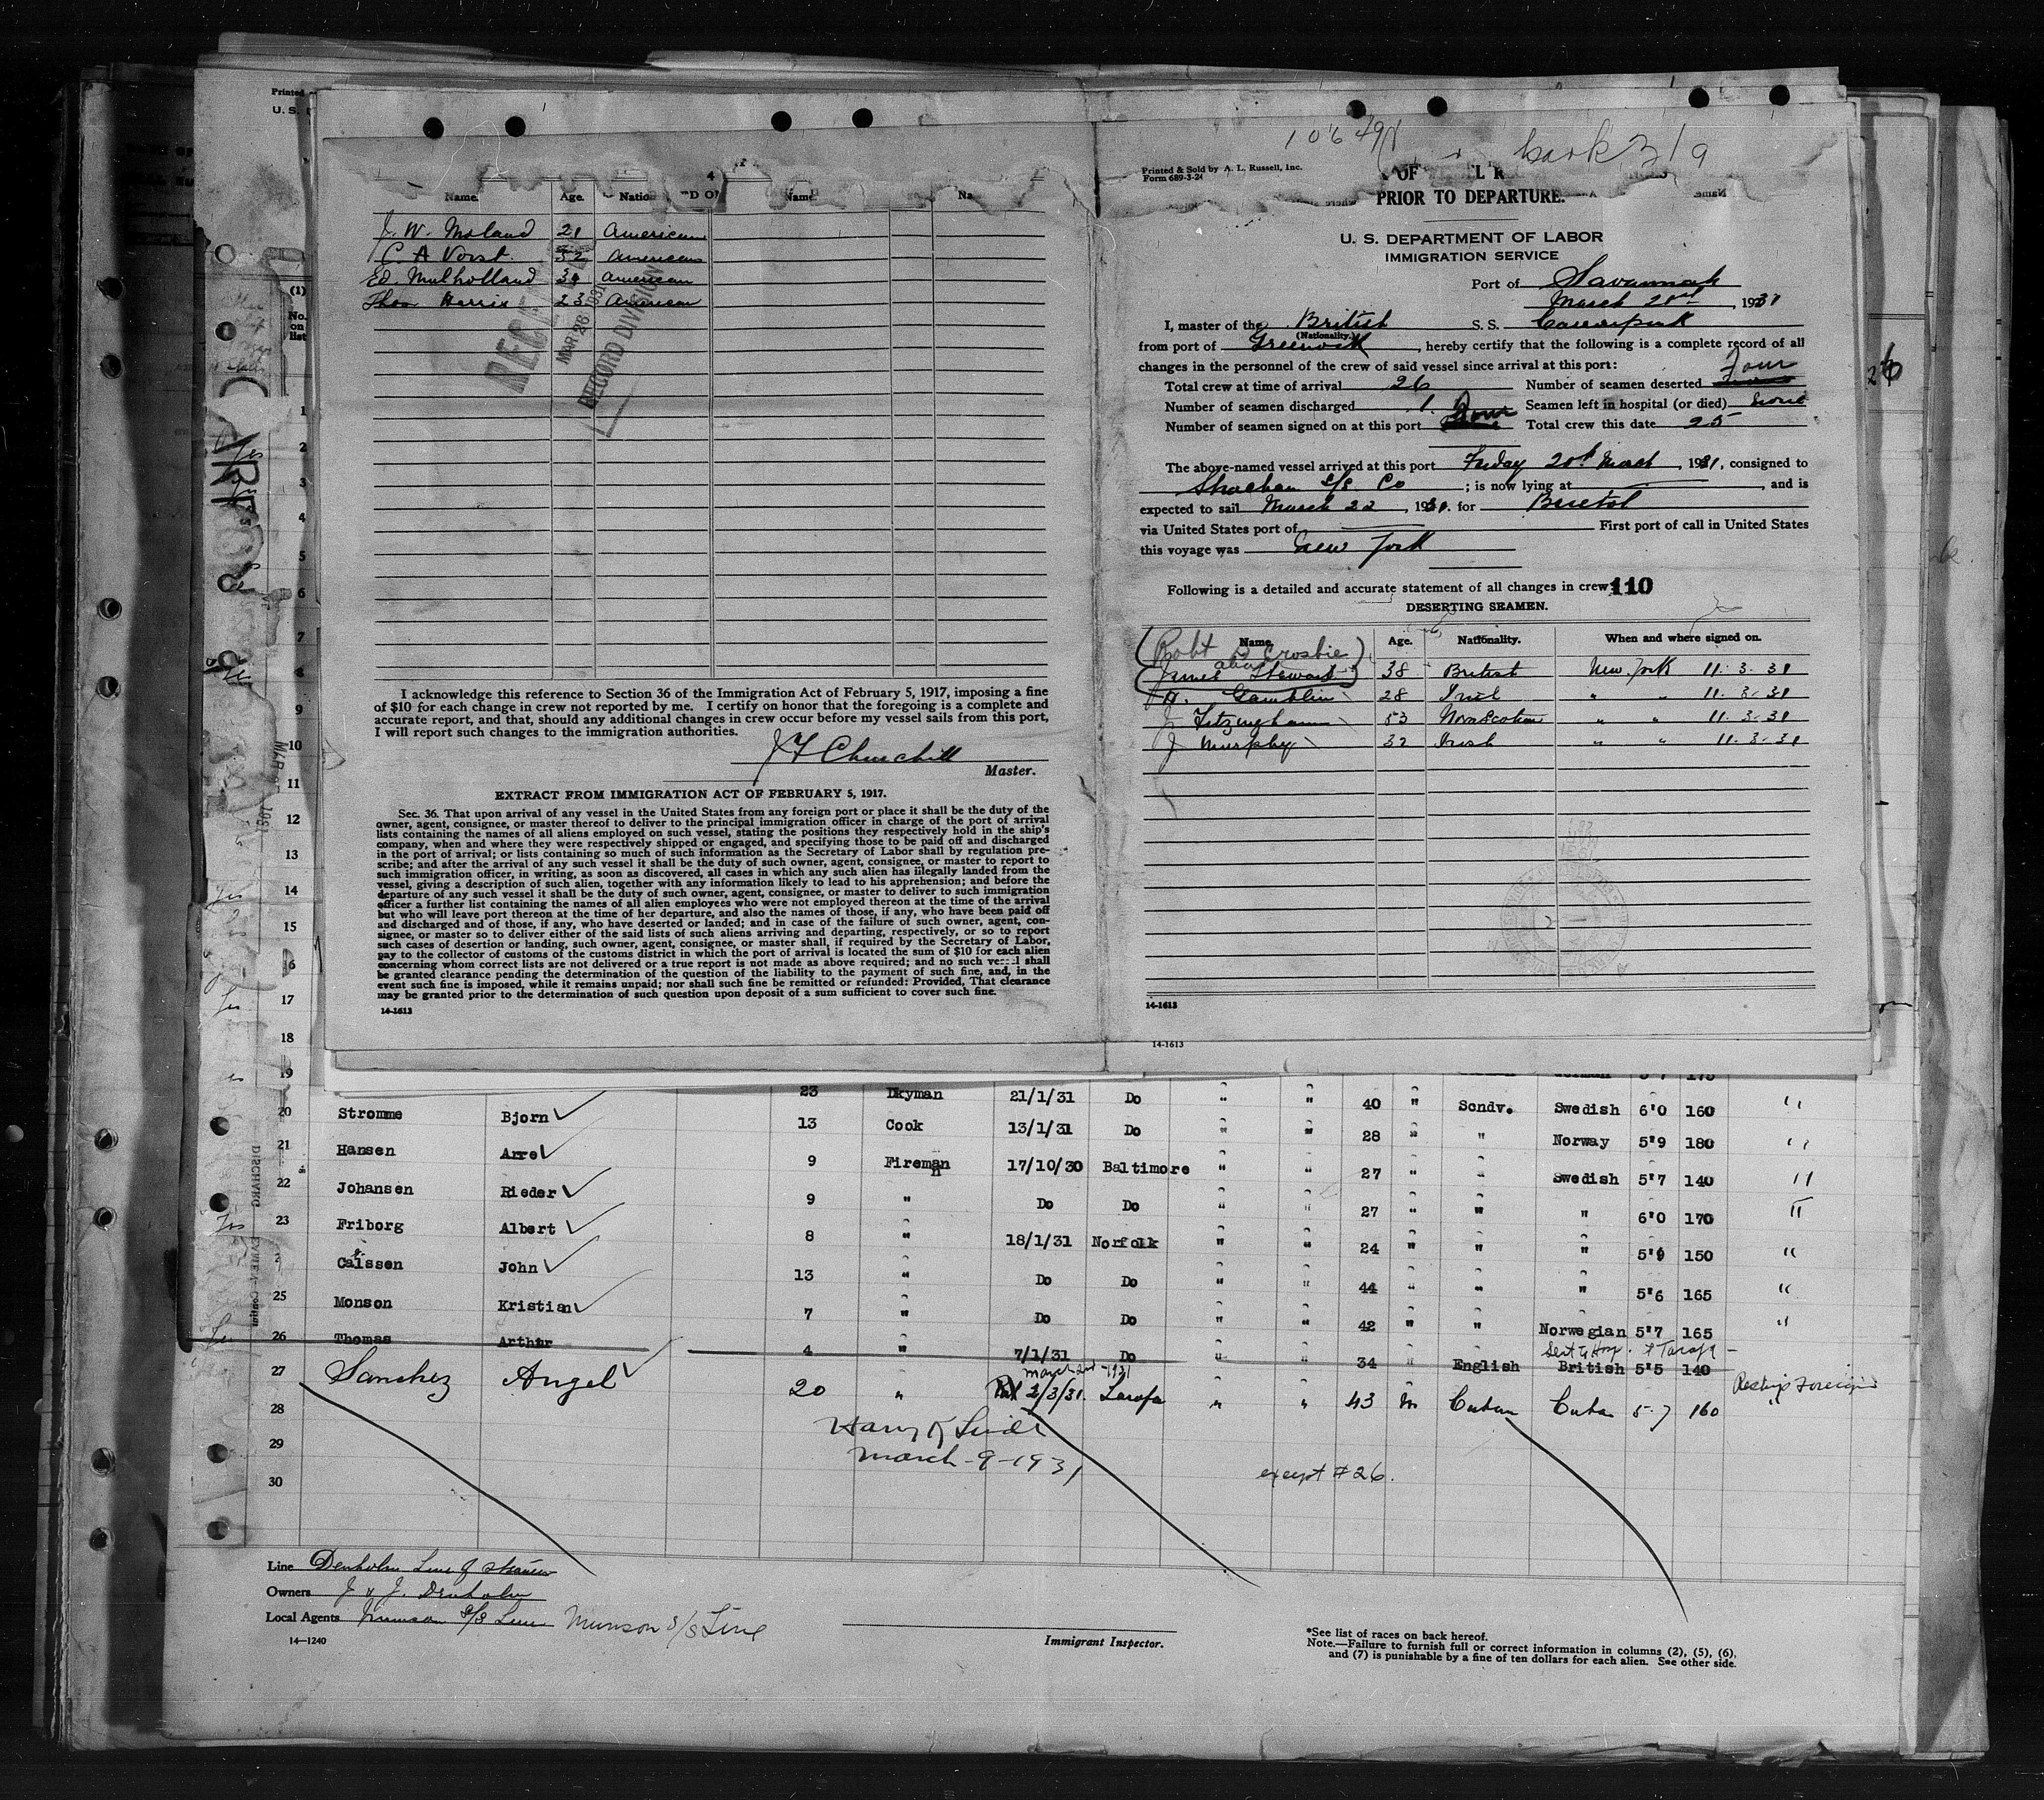 Printed
U. S.
4
Name. Age. Name.
J. W. Moland 21 American
C. A Vorst. 32 American
Ed. Mulholland 31 American
Thos Harris 23 American
RECEIVED
MAR 26 1931
RECORD DIVISION
I acknowledge this reference to Section 36 of the Immigration Act of February 5, 1917, imposing a fine
of $10 for each change in crew not reported by me. I certify on honor that the foregoing is a complete and
accurate report, and that, should any additional changes in crew occur before my vessel sails from this port,
I will report such changes to the immigration authorities.
J F Churchill
Master.
EXTRACT FROM IMMIGRATION ACT OF FEBRUARY 5, 1917.
Sec. 36. That upon arrival of any vessel in the United States from any foreign port or place it shall be the duty of the
owner, agent, consignee, or master thereof to deliver to the principal immigration officer in charge of the port of arrival
lists containing the names of all aliens employed on such vessel, stating the positions they respectively hold in the ship's
company, when and where they were respectively shipped or engaged, and specifying those to be paid off and discharged
in the port of arrival; or lists containing so much of such information as the Secretary of Labor shall by regulation pre-
scribe; and after the arrival of any such vessel it shall be the duty of such owner, agent, consignee, or master to report to
such immigration officer, in writing, as soon as discovered, all cases in which any such alien has illegally landed from the
vessel, giving a description of such alien, together with any information likely to lead to his apprehension; and before the
departure of any such vessel it shall be the duty of such owner, agent, consignee, or master to deliver to such immigration
officer a further list containing the names of all alien employees who were not employed thereon at the time of the arrival
but who will leave port thereon at the time of her departure, and also the names of those, if any, who have been paid off
and discharged and of those, if any, who have deserted or landed; and in case of the failure of such owner, agent, con-
signee, or master so to deliver either of the said lists of such aliens arriving and departing, respectively, or so to report
such cases of desertion or landing, such owner, agent, consignee, or master shall, if required by the Secretary of Labor,
pay to the collector of customs of the customs district in which the port of arrival is located the sum of $10 for each alien
concerning whom correct lists are not delivered or a true report is not made as above required; and no such vessel shall
be granted clearance pending the determination of the question of the liability to the payment of such fine, and, in the
event such fine is imposed, while it remains unpaid; nor shall such fine be remitted or refunded: Provided, That clearance
may be granted prior to the determination of such question upon deposit of a sum sufficient to cover such fine.
14-1613
Printed & Sold by A. L. Russell, Inc.
Form 689-3-24
PRIOR TO DEPARTURE.
U. S. DEPARTMENT OF LABOR
IMMIGRATION SERVICE
Port of Savannah
March 21st, 1931
I, master of the British S. S.
(Nationality.)
from port of Greenock, hereby certify that the following is a complete record of all
changes in the personnel of the crew of said vessel since arrival at this port:
Total crew at time of arrival 26 Number of seamen deserted Four
Number of seamen discharged 1. Seamen left in hospital (or died) None
Number of seamen signed on at this port Four Total crew this date 25
The above-named vessel arrived at this port Friday 20th March, 1931, consigned to
Strachan S/S Co; is now lying at , and is
expected to sail March 22, 1931. for Bristol
via United States port of First port of call in United States
this voyage was New York
Following is a detailed and accurate statement of all changes in crew: 110
DESERTING SEAMEN.
Name. Age. Nationality. When and where signed on.
Robt Crosbie
alias
James Stewart 38 British New York 11. 3. 31
Gamblin 28 Irish " " 11. 3. 31
J. 53 Novascotian " " 11. 3. 31
J Murphy 32 Irish " " 11. 3. 31
14-1613
14-1613
26
(1)
No.
on
list
1
2
3
4
5
6
7
8
9
10
11
12
13
14
15
16
17
18
19
23 Dkyman 21/1/31 Do " "
20 Stromme Bjorn 13 Cook 13/1/31 Do " " 40 " Scndv. Swedish 6'0 160 "
21 Hansen Arrel 9 Fireman 17/10/30 Baltimore " " 28 " " Norway 5'9 180 "
22 Johansen Rieder 9 " Do Do " " 27 " " Swedish 5'7 140 "
23 Friborg Albert 8 " 18/1/31 Norfolk " " 27 " " " 6'0 170 "
Caissen John 13 " Do Do " " 24 " " " 150 "
25 Monson Kristian 7 " Do Do " " 44 " " " 5'6 165 "
26 Thomas Arthur 4 " 7/1/31 Do " " 42 " " Norwegian 5'7 165 "
34 " English British 5'5 140
March 2nd -1931
27 Sanchez Angel 20 " 2/3/31. Tarafa " " 43 m Cuban Cuba 5-7 160 "
28
29
30
March-9-1931
except #26.
Line Denholm Line of Steamers
Owners J & J. Denholm
Local Agents Munson S/S Line Munson S/S Line
14—1240
Immigrant Inspector.
*See list of races on back hereof.
Note.—Failure to furnish full or correct information in columns (2), (5), (6),
and (7) is punishable by a fine of ten dollars for each alien. See other side.